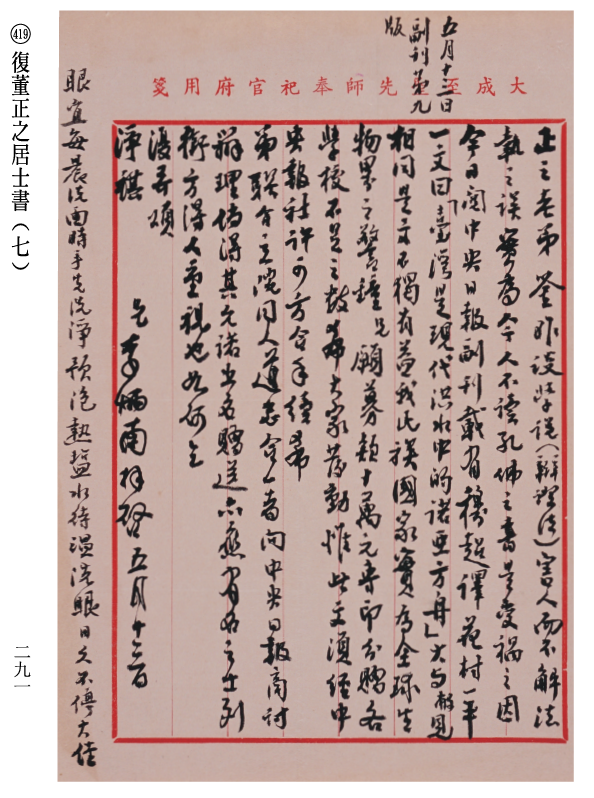 419 復董正之居士書(七)
大成至聖先師奉祀官府用箋
五月十三日
副刊第九
版
正之老弟鑒昨談學說(辯理法)害人而不解法
執之誤實為今人不讀孔佛之書是受禍之因
今日閱中央日報副刊載有穆超譯苑村一平
一文曰「臺灣是現代洪水中的諾亞方舟」大与鄙見
相同是文不獨有益我民族國家實為全球生
物界之警鐘兄願募款十萬元專印分贈各
學校不足之數希大家發動惟此文須經中
央報社許可方合手續希
弟聯合立院同人道志合一者向中央日報商討
辦理倘得其允諾出名贈送亦應有名之士列
銜方得人重視也如何乞
復并頌
淨祺
兄李炳南拜啓五月十三日
眼宜每晨洗面時手先洗淨預泡熱鹽水待溫洗眼日久不停大佳
二九一